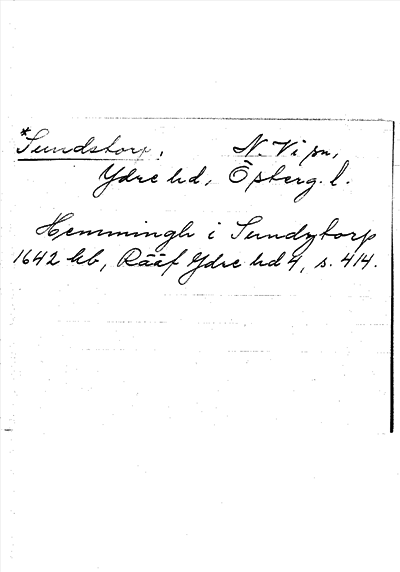 *Sundstorp, N. Vi sn,
Ydre hd, Östberg. l.
Hemmingh i Sundztorp
1642 hb, Rääf Ydre hd 4, s. 414.